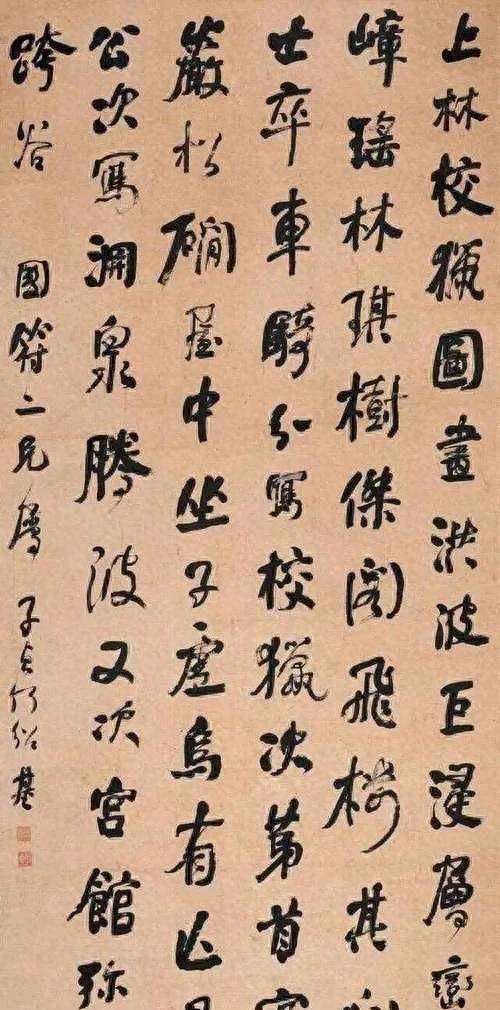 上林校獵圖畫洪波巨浸層巒
嶂瑤林琪樹傑閣飛橋其
士卒車騎分寫校獵次第首
嚴松磵屋中坐子虛烏有亡
公次寫湧泉騰波又次宮館弥
跨谷 國符二兄屬 子貞何紹基